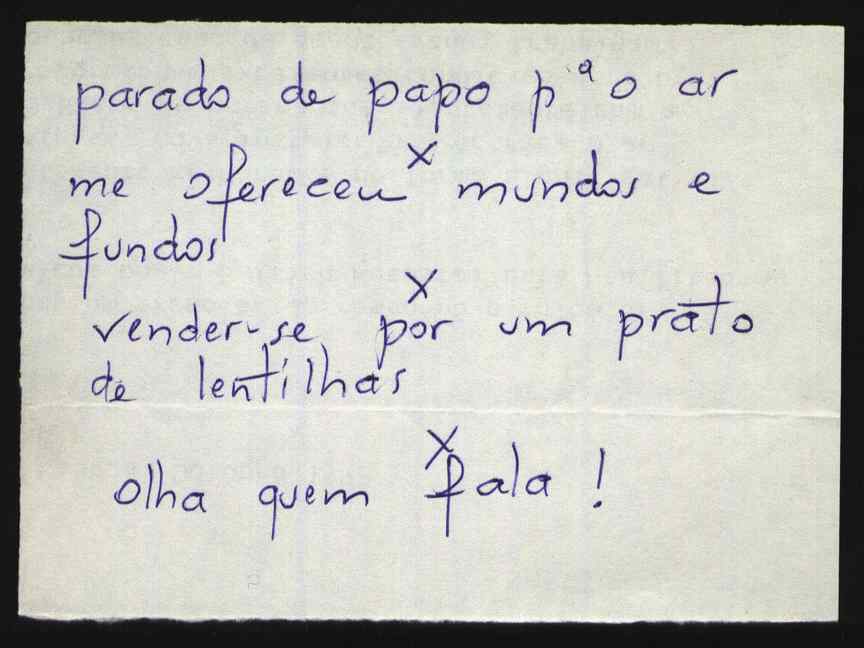 parado de papo pª o ar
x
me ofereceu mundos e
fundos
x
vender-se por um prato
de lentilhas
x
olha quem fala!